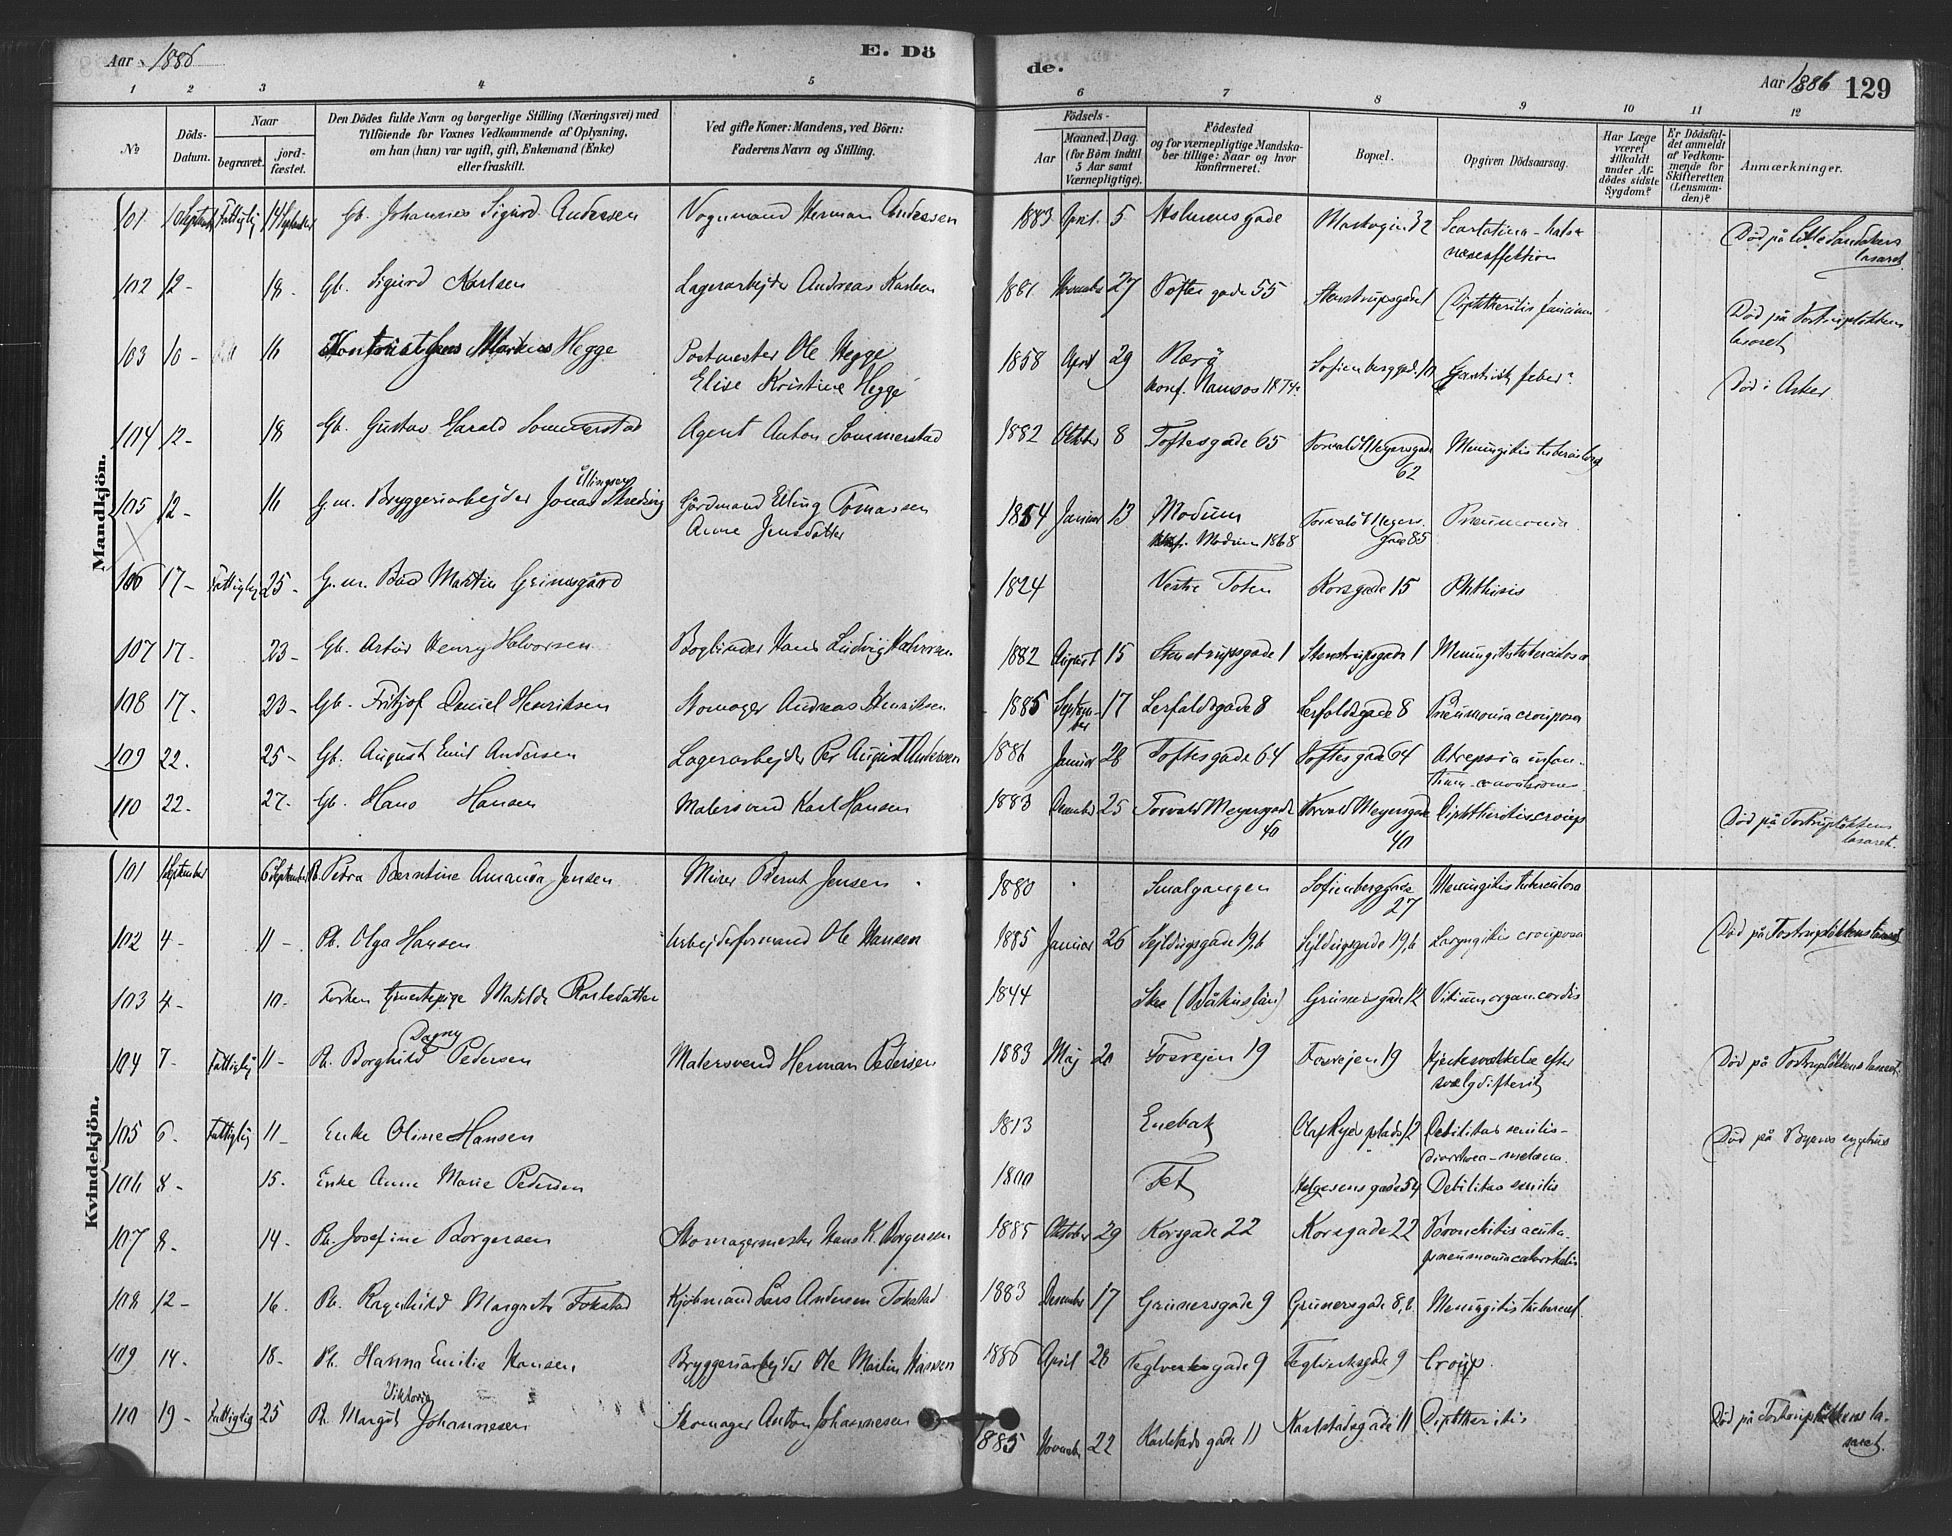 Aar 1886
E. Dö
de.
Aar 1886 129
1 2 3 4 5 6 7 8 9 10 11 12
No
Döds-Datum.
Naar
begravet.
jord-fæstet.
Den Dödes fulde Navn og borgerlige Stilling (Næringsvei) med
Tilföiende for Voxnes Vedkommende af Oplysning,
om han (hun) var ugift, gift, Enkemand (Enke)
eller fraskilt.
Ved gifte Koner: Mandens, ved Börn:
Faderens Navn og Stilling.
Födsels-
Aar
Maaned. Dag.
(for Börn indtil
5 Aar samt
Værnepligtige).
Födested
og for værnepligtige Mandska-
ber tillige: Naar og hvor
konfirmeret.
Bopæl.
Opgiven Dödsaarsag.
Har Læge
været
tilkaldt
under Af-
dödes sidste
Sygdom?
Er Dödsfal-
det anmeldt
af Vedkom-
mende for
Skifteretten
(Lensman-
den)?
Anmærkninger.
Mandkjön.
101 10 September Fattiglig 14 September Gb. Johannes Sigurd Andersen Vognmand Herman Andersen 1883 April 5 32 Död på Lille
lasaret
102 12 - 18 - Gb. Sigurd Karlsen Lagerarbejder Andreas Karlsen 1881 27 Toftesgade 55 Stenstrupsgade 1 Diphtheritis faucium Död på Tostrupløkkens
lasaret
103 10 - 16 Markus Hegge Postmester Ole Hegge 1858 April 29 Nærö Gastrisk feber Död i Asker
Elise Kristine Hegge konf. Namsos 1874
104 12 - 18 Gb. Gustav Harald Sommerstad Agent Anton Sommerstad 1882 Oktober 8 Toftesgade 65 Torvald Meyersgade Meningitis tuberculosa
62
105 12 - 16 G.m. Bryggeriarbejder Jonas Ellingsen Gårdmand Elling Tomassen 1854 Januar 13 Modum Torvald Meyers Pneumonia
Anne Jensdatter konf. Modum 1868 gade 85
106 17 - Fattiglig 25 - G.m. Martin Grimsgård 1824 Vestre Toten Korsgade 15 Phthisis
107 17. 23 - Gb. Artur Henry Halvorsen Bogbinder Hans Ludvig Halvorsen 1882 August 15 Stenstrupsgade 1 Stenstrupsgade 1 Meningitis tuberculosa
108 17. 23 - Gb. Fritjof Daniel Henriksen Skomager Andreas Henriksen 1885 September 17 Lerfaldsgade 8 Lerfaldsgade 8 Pneumonia crouposa
109 22. 25 - Gb. August Emil Andersen Lagerarbejder Per August Andersen 1886 Januar 28 Toftesgade 64 Toftesgade 64 Atrepsia infan-
tum
110 22. 27. Gb. Hans Hansen Malersvend Karl Hansen 1883 December 25 Torvald Meyersgade Torvald Meyersgade Diphtheritis croup
40 40 Död på Tostrupløkkens
lasaret.
Kvindekjön.
101 1 September 6 September Pb. Petra Berntine Amanda Jensen Murer Bernt Jensen 1880 Smalgangen Sofienberggade Meningitis tuberculosa
27
102 4 - 11 - Pb. Olga Hansen Arbejdsformand Ole Hansen 1885 Januar 26 Sejldugsgade 19,b Sejldugsgade 19,b Laryngitis crouposa Död på Tostrupløkkens lasaret
103 4 - 10 - Matilde Karlsdatter 1844 Skee (Båhuslän) Grünersgade 12 Vitium organ. cordis
104 7 - Fattiglig 11 - Pb. Borghild Dagny Pedersen Malersvend Herman Pedersen 1883 Maj 20 Fosvejen 19 Fosvejen 19 Hjertesvækkelse efter Död på Tostrupløkkens lasaret
svælgdifterit
105 6. Fattiglig 11 - Enke Oline Hansen 1813 Enebak Olaf Ryes plads 12 Debilitas senilis - Död på Byens sygehus
diarrhoea - melæna.
106 8 - 15. Enke Anne Marie Pedersen 1800 Fet Helgesensgade 54 Debilitas senilis
107 8 - 14 - Pb. Josefine Borgersen Skomagermester Hans K. Borgersen 1885 Oktober 29 Korsgade 22 Korsgade 22 Bronchitis acuta
pneumonia catarrhalis
108 12 - 16. Pb. Ragnhild Margrete Fokstad Kjöbmand Lars Andersen Fokstad 1883 December 17 Grunersgade 9 Grunersgade 8,b Meningitis tubercul.
109 14 - 18 - Pb. Hanna Emilie Hansen Bryggeriarbejder Ole Martin Hansen 1886 April 28 Teglverksgade 9 Teglverksgade 9 Croup.
110 19 - Fattiglig 25 Pb. Margit Viktoria Johannesen Skomager Anton Johannesen 1885 November 22 Karlstadsgade 11 Karlstadsgade 11 Diphtheritis Död på Tostrupløkkens la-
saret.